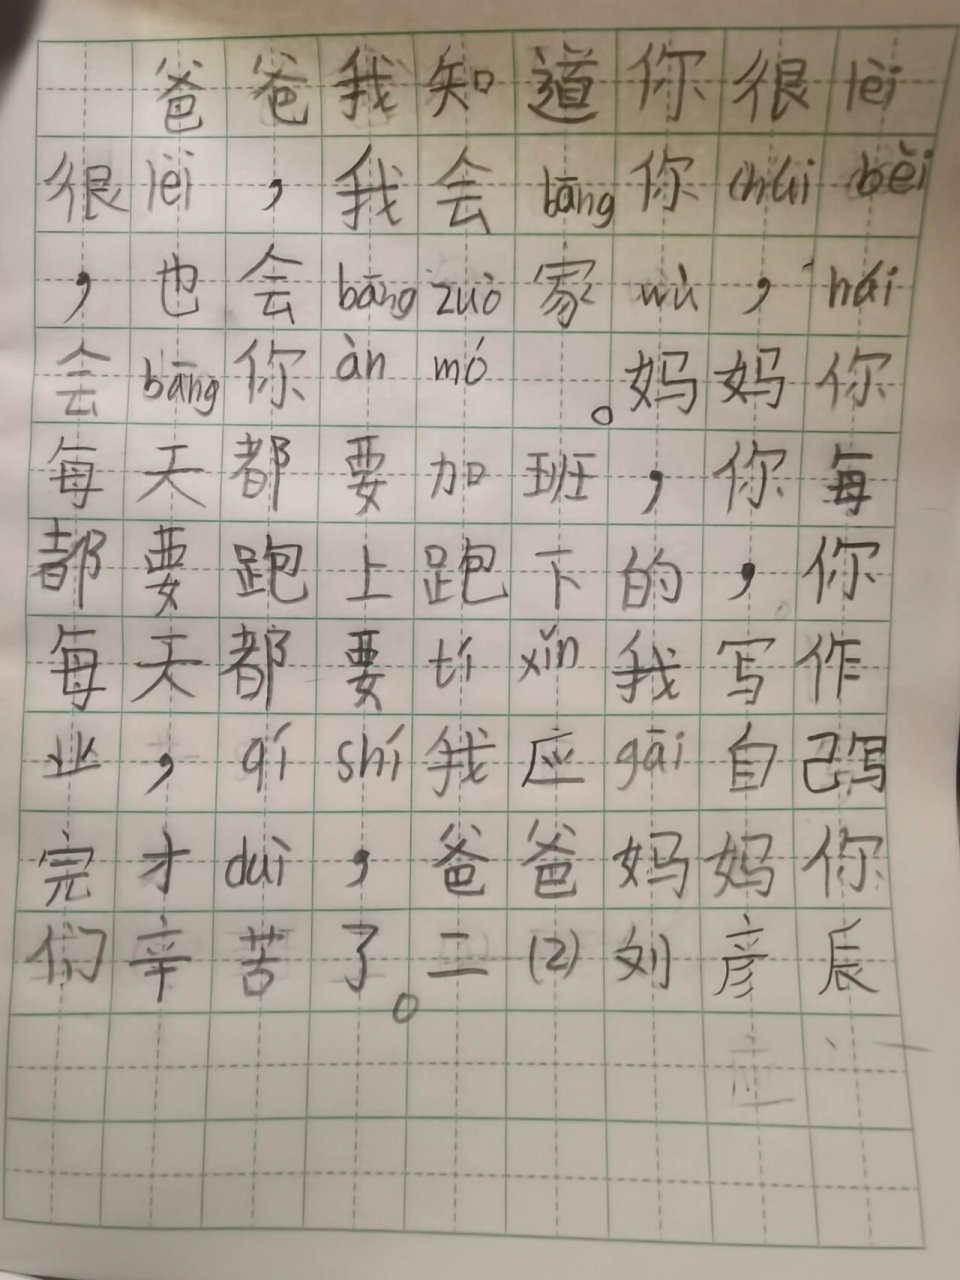 爸爸我知道你很lèi
很lèi，我会bāng你chúi bèi
，也会bāng zuò家wù，hái
会bāng你àn mó。妈妈你
每天都要加班，你每
都要跑上跑下的，你
每天都要tí xǐn我写作
业，qí shí我应gāi自己写
完才duì，爸爸妈妈你
们辛苦了。二(2)刘彦辰
应